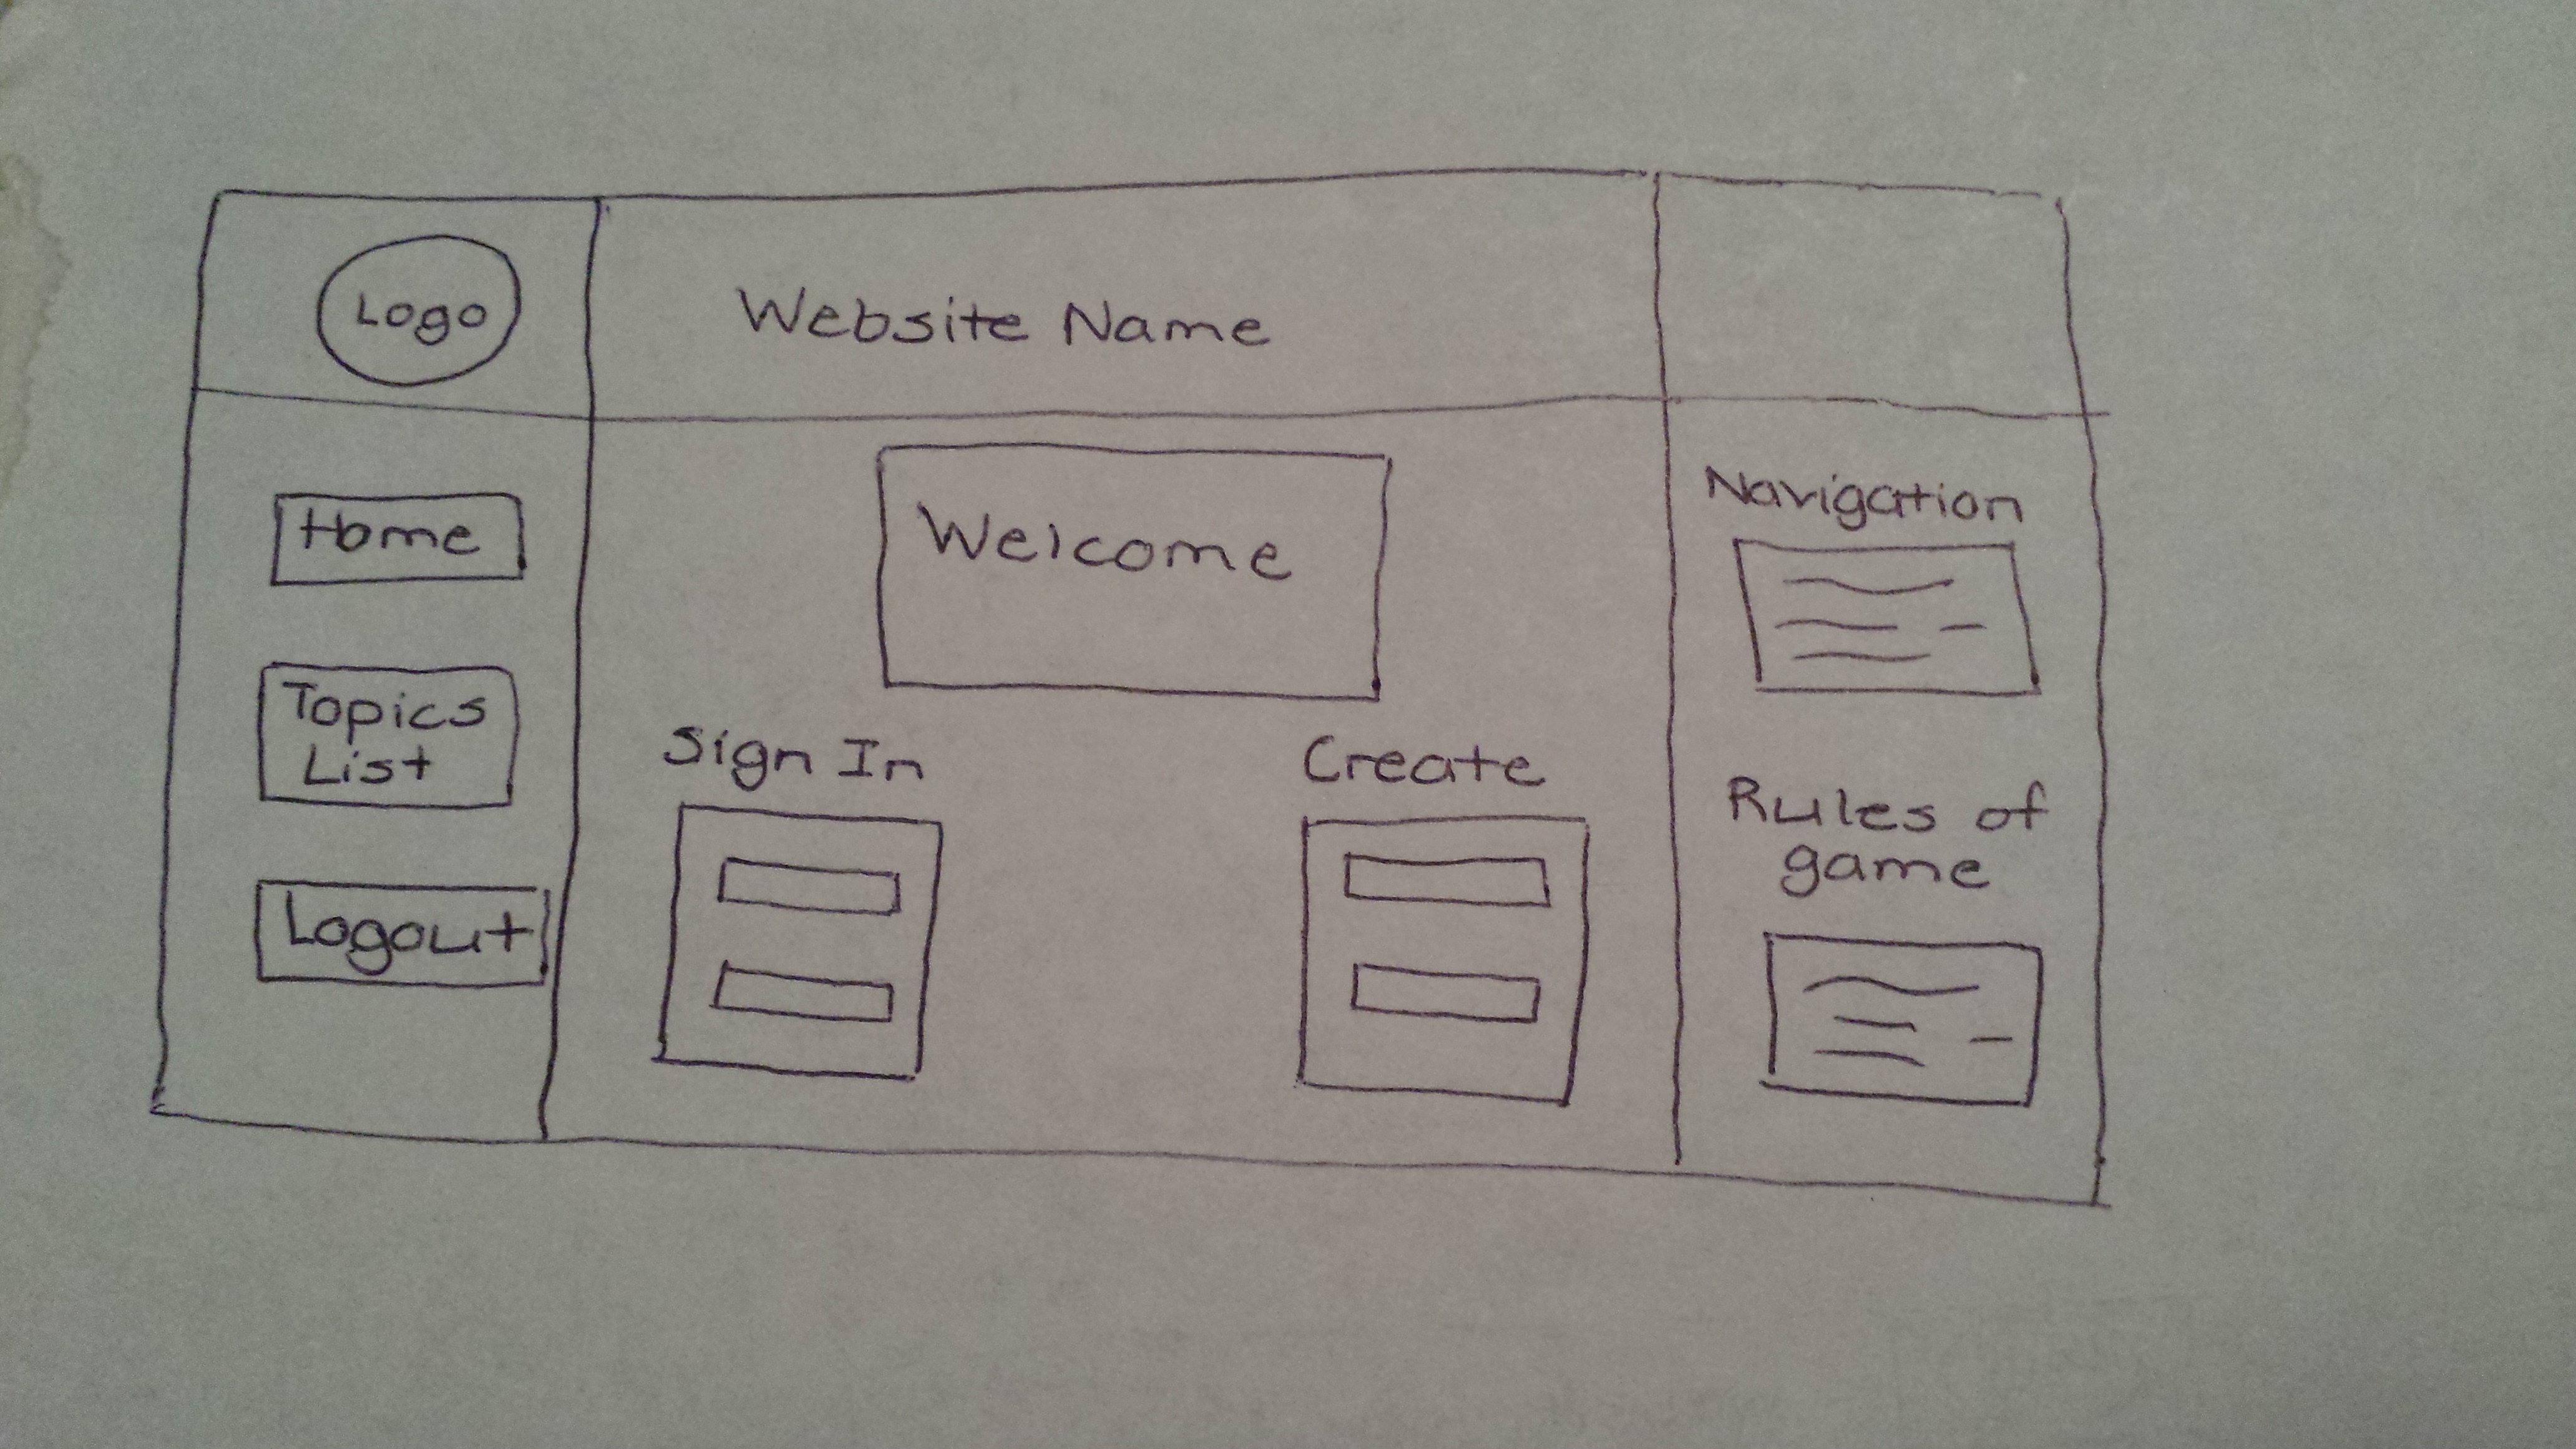 Logo
Website Name
Home
Topics
List
Logout
Welcome
Sign In
Create
Navigation
Rules of
game